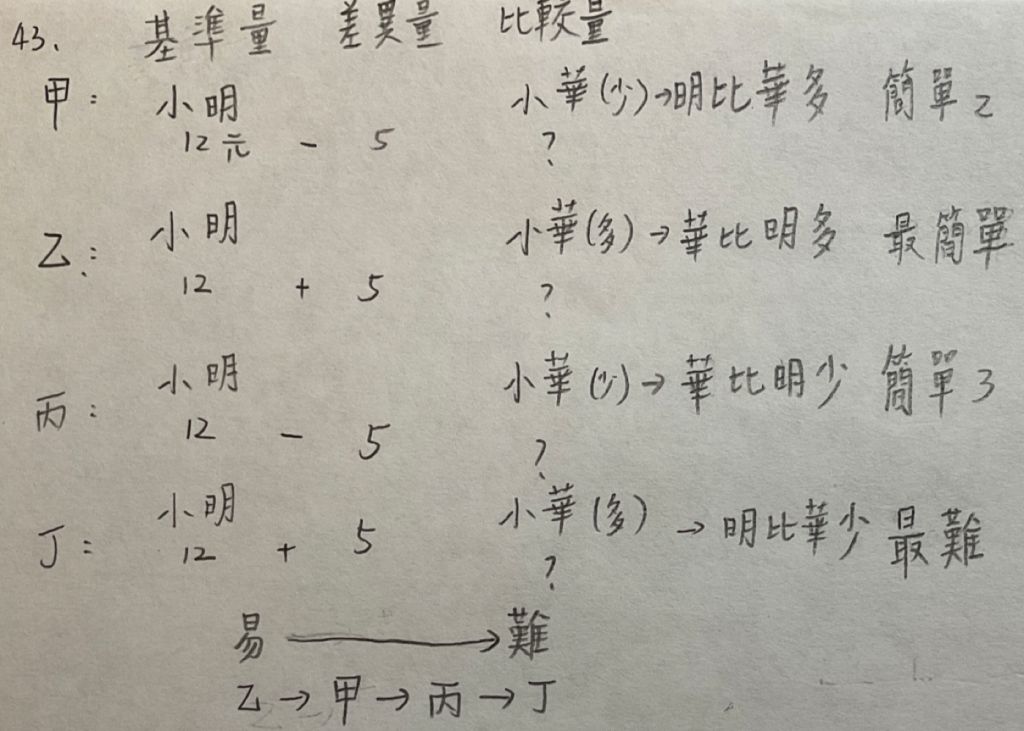 43. 基準量 差異量 比較量
甲: 小明 小華(少)→明比華多 簡單2
12元 - 5 ?
乙: 小明 小華(多)→華比明多 最簡單
12 + 5 ?
丙: 小明 小華(少)→華比明少 簡單3
12 - 5 ?
丁: 小明 小華(多)→明比華少 最難
12 + 5 ?
易 → 難
乙→甲→丙→丁